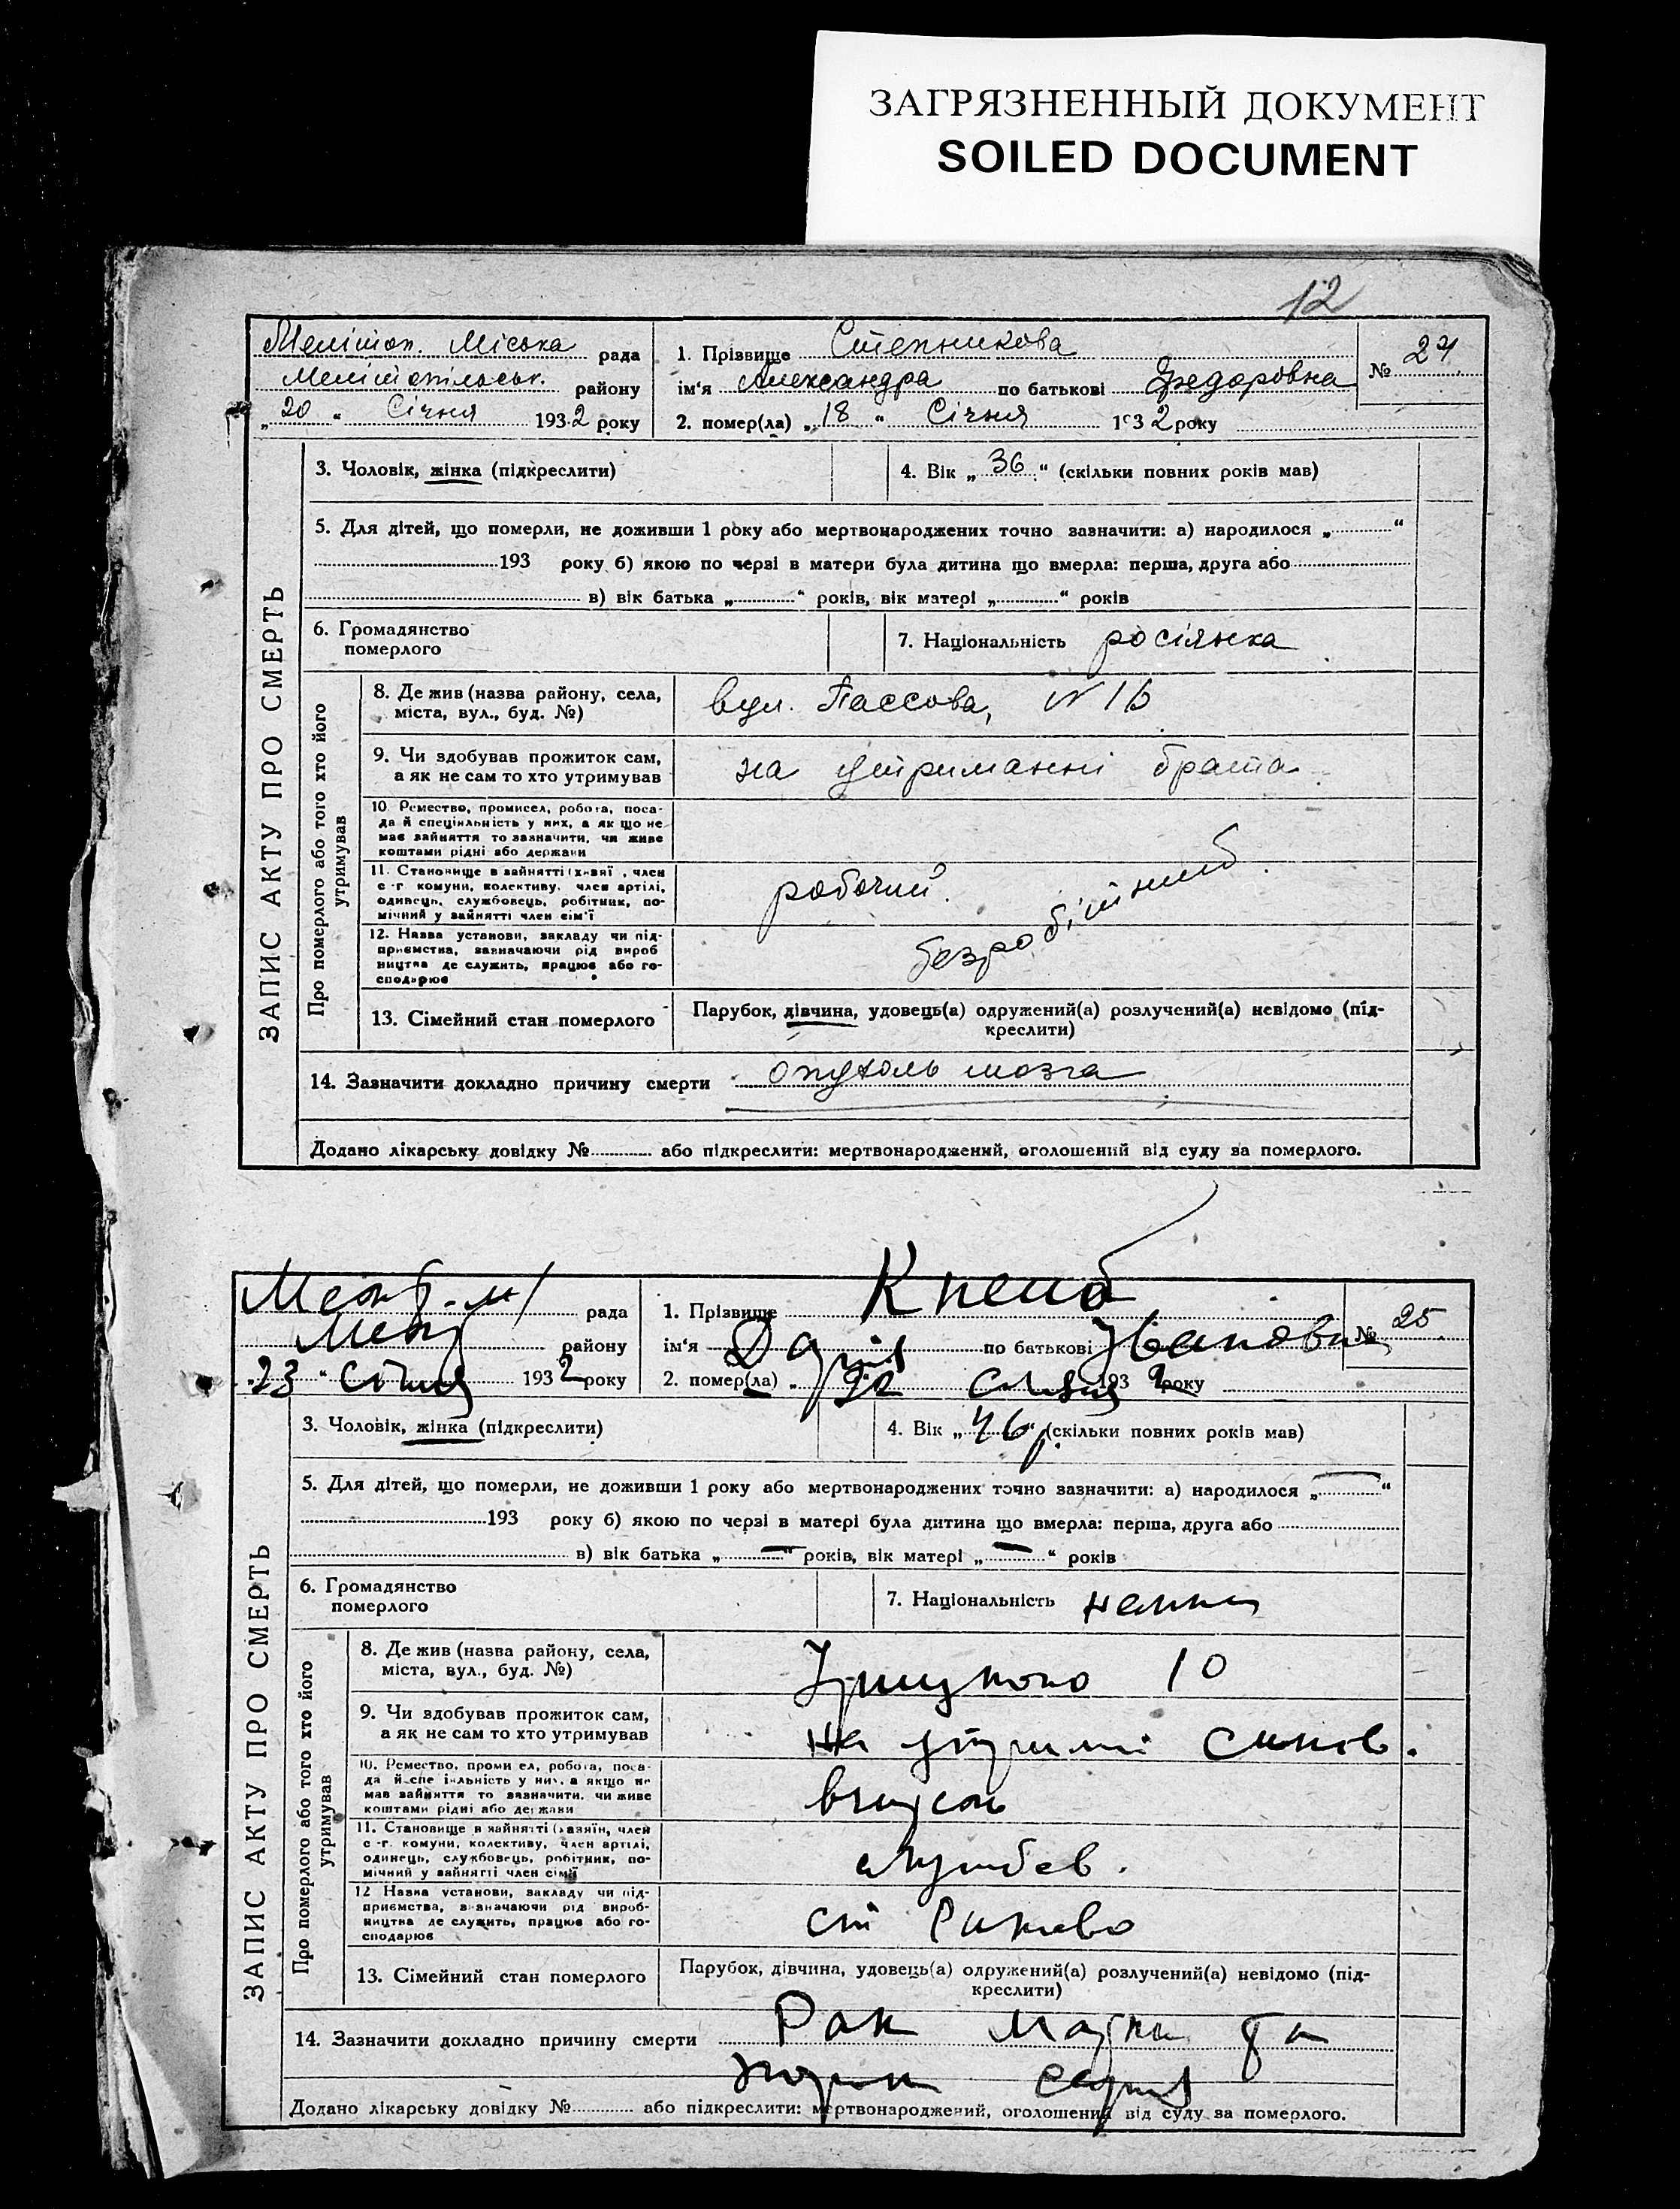 ЗАГРЯЗНЕННЫЙ ДОКУМЕНТ
SOILED DOCUMENT
12
ЗАПИС АКТУ ПРО СМЕРТЬ
Мелітоп. Міська рада
Мелітопільськ. району
„20“ Січня 1932 року
1. Прізвище Степникова
ім'я Александра по батькові Федоровна
2. помер(ла) „18“ Січня 1932 року
№ 24
3. Чоловік, жінка (підкреслити)
4. Вік „36“ (скільки повних років мав)
5. Для дітей, що померли, не доживши 1 року або мертвонароджених точно зазначити: а) народилося „ “
193 року б) якою по черзі в матери була дитина що вмерла: перша, друга або
в) вік батька „ “ років, вік матері „ “ років
6. Громадянство
померлого
7. Національність росіянка
Про померлого або того хто його
утримував
8. Де жив (назва району, села,
міста, вул., буд. №)
вул. N 16
9. Чи здобував прожиток сам,
а як не сам то хто утримував
на утриманні брата
10. Ремество, промисел, робота, поса-
да й спеціяльність у них, а як що не
має зайняття то зазначити, чи живе
коштами рідні або держави
11. Становище в зайнятті (хазяї, член
с-г комуни, колективу, член артілі,
одинець, службовець, робітник, по-
мічний у зайнятті член сім'ї
робочий.
безробітний
12. Назва установи, закладу чи під-
приємства, зазначаючи рід вироб
ництва де служить, працює або го-
сподарює
13. Сімейний стан померлого
Парубок, дівчина, удовець(а) одружений(а) розлучений(а) невідомо (під-
креслити)
14. Зазначити докладно причину смерти опухоль мозга
Додано лікарську довідку № або підкреслити: мертвонароджений, оголошений від суду за померлого.
ЗАПИС АКТУ ПРО СМЕРТЬ
рада
району
„23“ Січня 1932 року
1. Прізвище
ім'я по батькові Ивановна
2. помер(ла) „22 Січня 1932 року
№ 25
3. Чоловік, жінка (підкреслити)
4. Вік „46 р. (скільки повних років мав)
5. Для дітей, що померли, не доживши 1 року або мертвонароджених точно зазначити: а) народилося „—“
193 року б) якою по черзі в матері була дитина що вмерла: перша, друга або
в) вік батька „—“ років, вік матері „—“ років
6. Громадянство
померлого
7. Національність немка
Про померлого або того хто його
утримував
8. Де жив (назва району, села,
міста, вул., буд. №)
Урицкого 10
9. Чи здобував прожиток сам,
а як не сам то хто утримував
на утриманні синов.
10. Ремество, промисел, робота, поса-
да й спеціяльність у них, а якщо не
мав зайняття то зазначити, чи живе
коштами рідні або держави
11. Становище в зайнятті (хазяїн, член
с-г. комуни, колективу, член артілі,
одинець, службовець, робітник, по-
мічний у зайнятті член сімї
службов.
12 Назва установи, закладу чи під-
приємства, зазначаючи рід вироб-
ництва де служить, працює або го-
сподарює
ст
13. Сімейний стан померлого
Парубок, дівчина, удовець(а) одружений(а) розлучений(а) невідомо (під-
креслити)
14. Зазначити докладно причину смерти Рак матки
Додано лікарську довідку № або підкреслити: мертвонароджений, оголошений від суду за померлого.